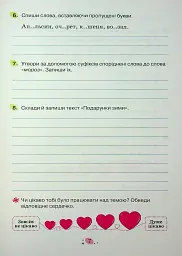 6. Спиши слова, вставляючи пропущені букви.
Ап...льсин, оч...рет, к...шеня, во...зал.
7. Утвори за допомогою суфіксів споріднені слова до слова
«мороз». Запиши їх.
8. Склади й запиши текст «Подарунки зими».
Чи цікаво тобі було працювати над темою? Обведи
відповідне сердечко.
Зовсім
не цікаво
Дуже
цікаво